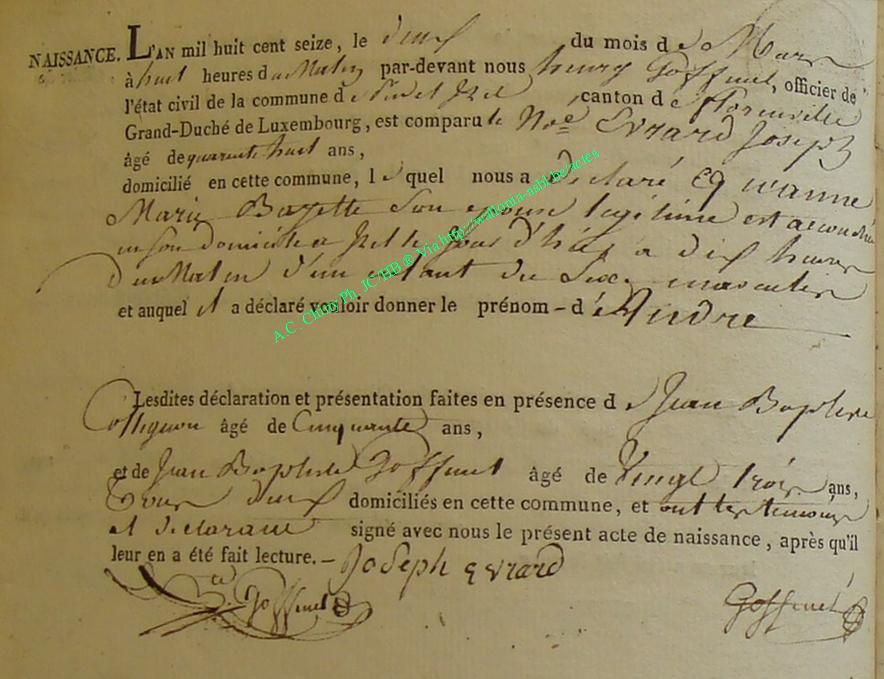 NAISSANCE. L'AN mil huit cent seize, le deux du mois de Mars
à huit heures du Matin par-devant nous henry Goffinet, officier de
l'état civil de la commune d Izel canton de florenville
Grand-Duché de Luxembourg, est comparu le Evrard Joseph
âgé de quarante huit ans,
domicilié en cette commune, le quel nous a déclaré que anne
Marie Bazette Son epouse legitime est accouchée
en son domicile a Izel le jour d'hier a dix heures
du Matin d'un enfant du Sexe masculin
et auquel il a déclaré vouloir donner le prénom - d'Andre
Lesdites déclaration et présentation faites en présence de Jean Baptiste
Collignon âgé de Cinquante ans,
et de Jean Baptiste Goffinet âgé de Vingt trois ans,
tous deux domiciliés en cette commune, et ont les temoins
et declarant signé avec nous le présent acte de naissance, après qu'il
leur en a été fait lecture. — Joseph Evrard
Goffinet Goffinet
A.C. Chiny Ph. JC/HB @ Via http://wallonia-asbl.be/actes